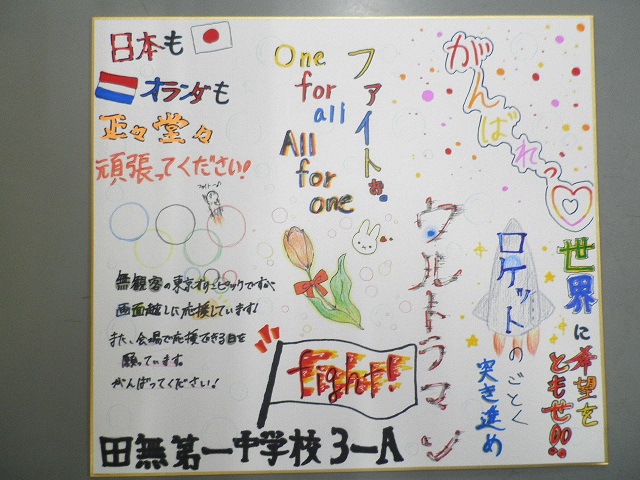 日本も
オランダも
正々堂々
頑張ってください!
One
for
all
All
for
one
ファイトぉ
がんばれっ
ウルトラマン
ロケットのごとく
突き進め
世界に希望を
ともせ!!
無観客の東京オリンピックですが、
画面越しに応援しています!
また、会場で応援できる日を
願っています。
がんばってください!
fight!
田無第一中学校 3-A